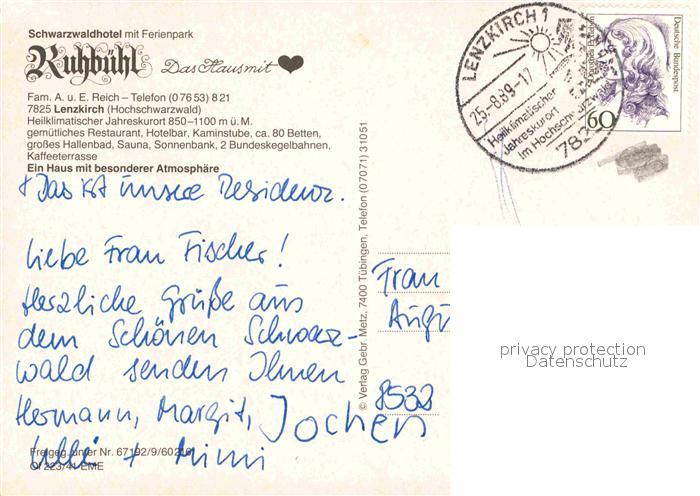 Schwarzwaldhotel mit Ferienpark
Ruhbühl Das Haus mit
Fam. A. u. E. Reich – Telefon (0 76 53) 8 21
7825 Lenzkirch (Hochschwarzwald)
Heilklimatischer Jahreskurort 850–1100 m ü. M.
gemütliches Restaurant, Hotelbar, Kaminstube, ca. 80 Betten,
großes Hallenbad, Sauna, Sonnenbank, 2 Bundeskegelbahnen,
Kaffeeterrasse
Ein Haus mit besonderer Atmosphäre
+ Das ist unsere Residenz.
Liebe Frau Fischer!
Herzliche Grüße aus
dem Schönen Schwarz-
wald senden Ihnen
Hermann, Margit, Jochen
+ Mimi
Freigeg. unter Nr. 67192/9/60216
Of 223/41 EME
© Verlag Gebr. Metz, 7400 Tübingen, Telefon (0 70 71) 3 10 51
LENZKIRCH 1
25-8.89-17
Heilklimatischer
Jahreskurort
im Hochschwarzwald
782
Deutsche Bundespost
60
Frau
8532
privacy protection
Datenschutz